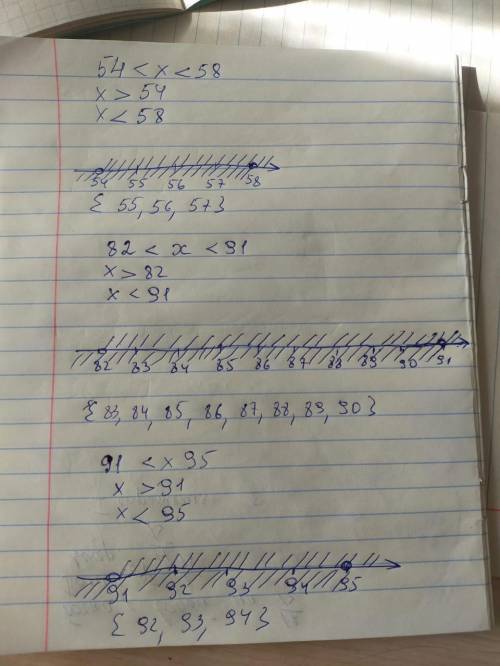 54 < x < 58
x > 54
x < 58
54 55 56 57 58
{ 55, 56, 57}
82 < x < 91
x > 82
x < 91
82 83 84 85 86 87 88 89 90 91
{83, 84, 85, 86, 87, 88, 89, 90}
91 < x 95
x > 91
x < 95
91 92 93 94 95
{ 92, 93, 94}